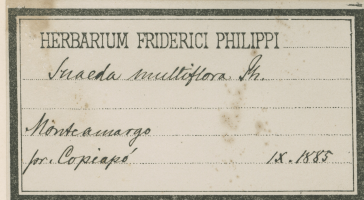 HERBARIUM FRIDERICI PHILIPPI
Suaeda multiflora Ph.
Monteamargo
pr. Copiapó IX. 1885